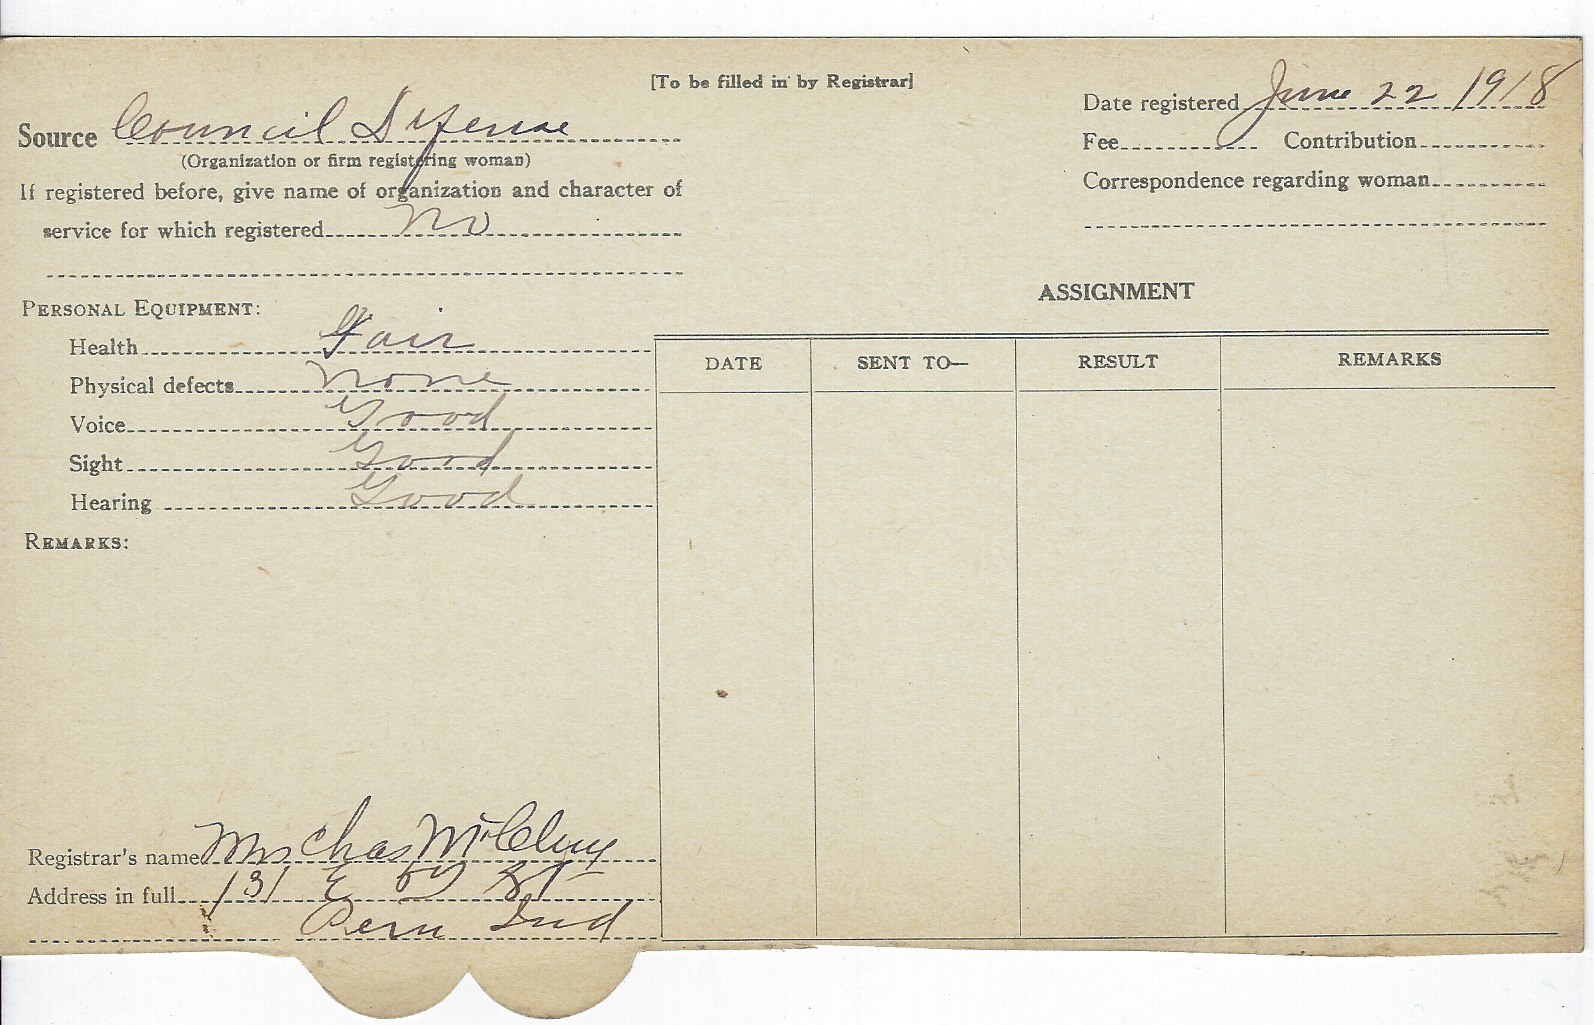 [To be filled in by Registrar]
Date registered June 22 1918
Source Council Defense
(Organization or firm registering woman)
Fee Contribution
If registered before, give name of organization and character of
service for which registered No
Correspondence regarding woman
PERSONAL EQUIPMENT:
Health Fair
Physical defects None
Voice Good
Sight Good
Hearing Good
REMARKS:
ASSIGNMENT
DATE SENT TO— RESULT REMARKS
Registrar's name Mrs Chas
Address in full 131 E St
Peru Ind